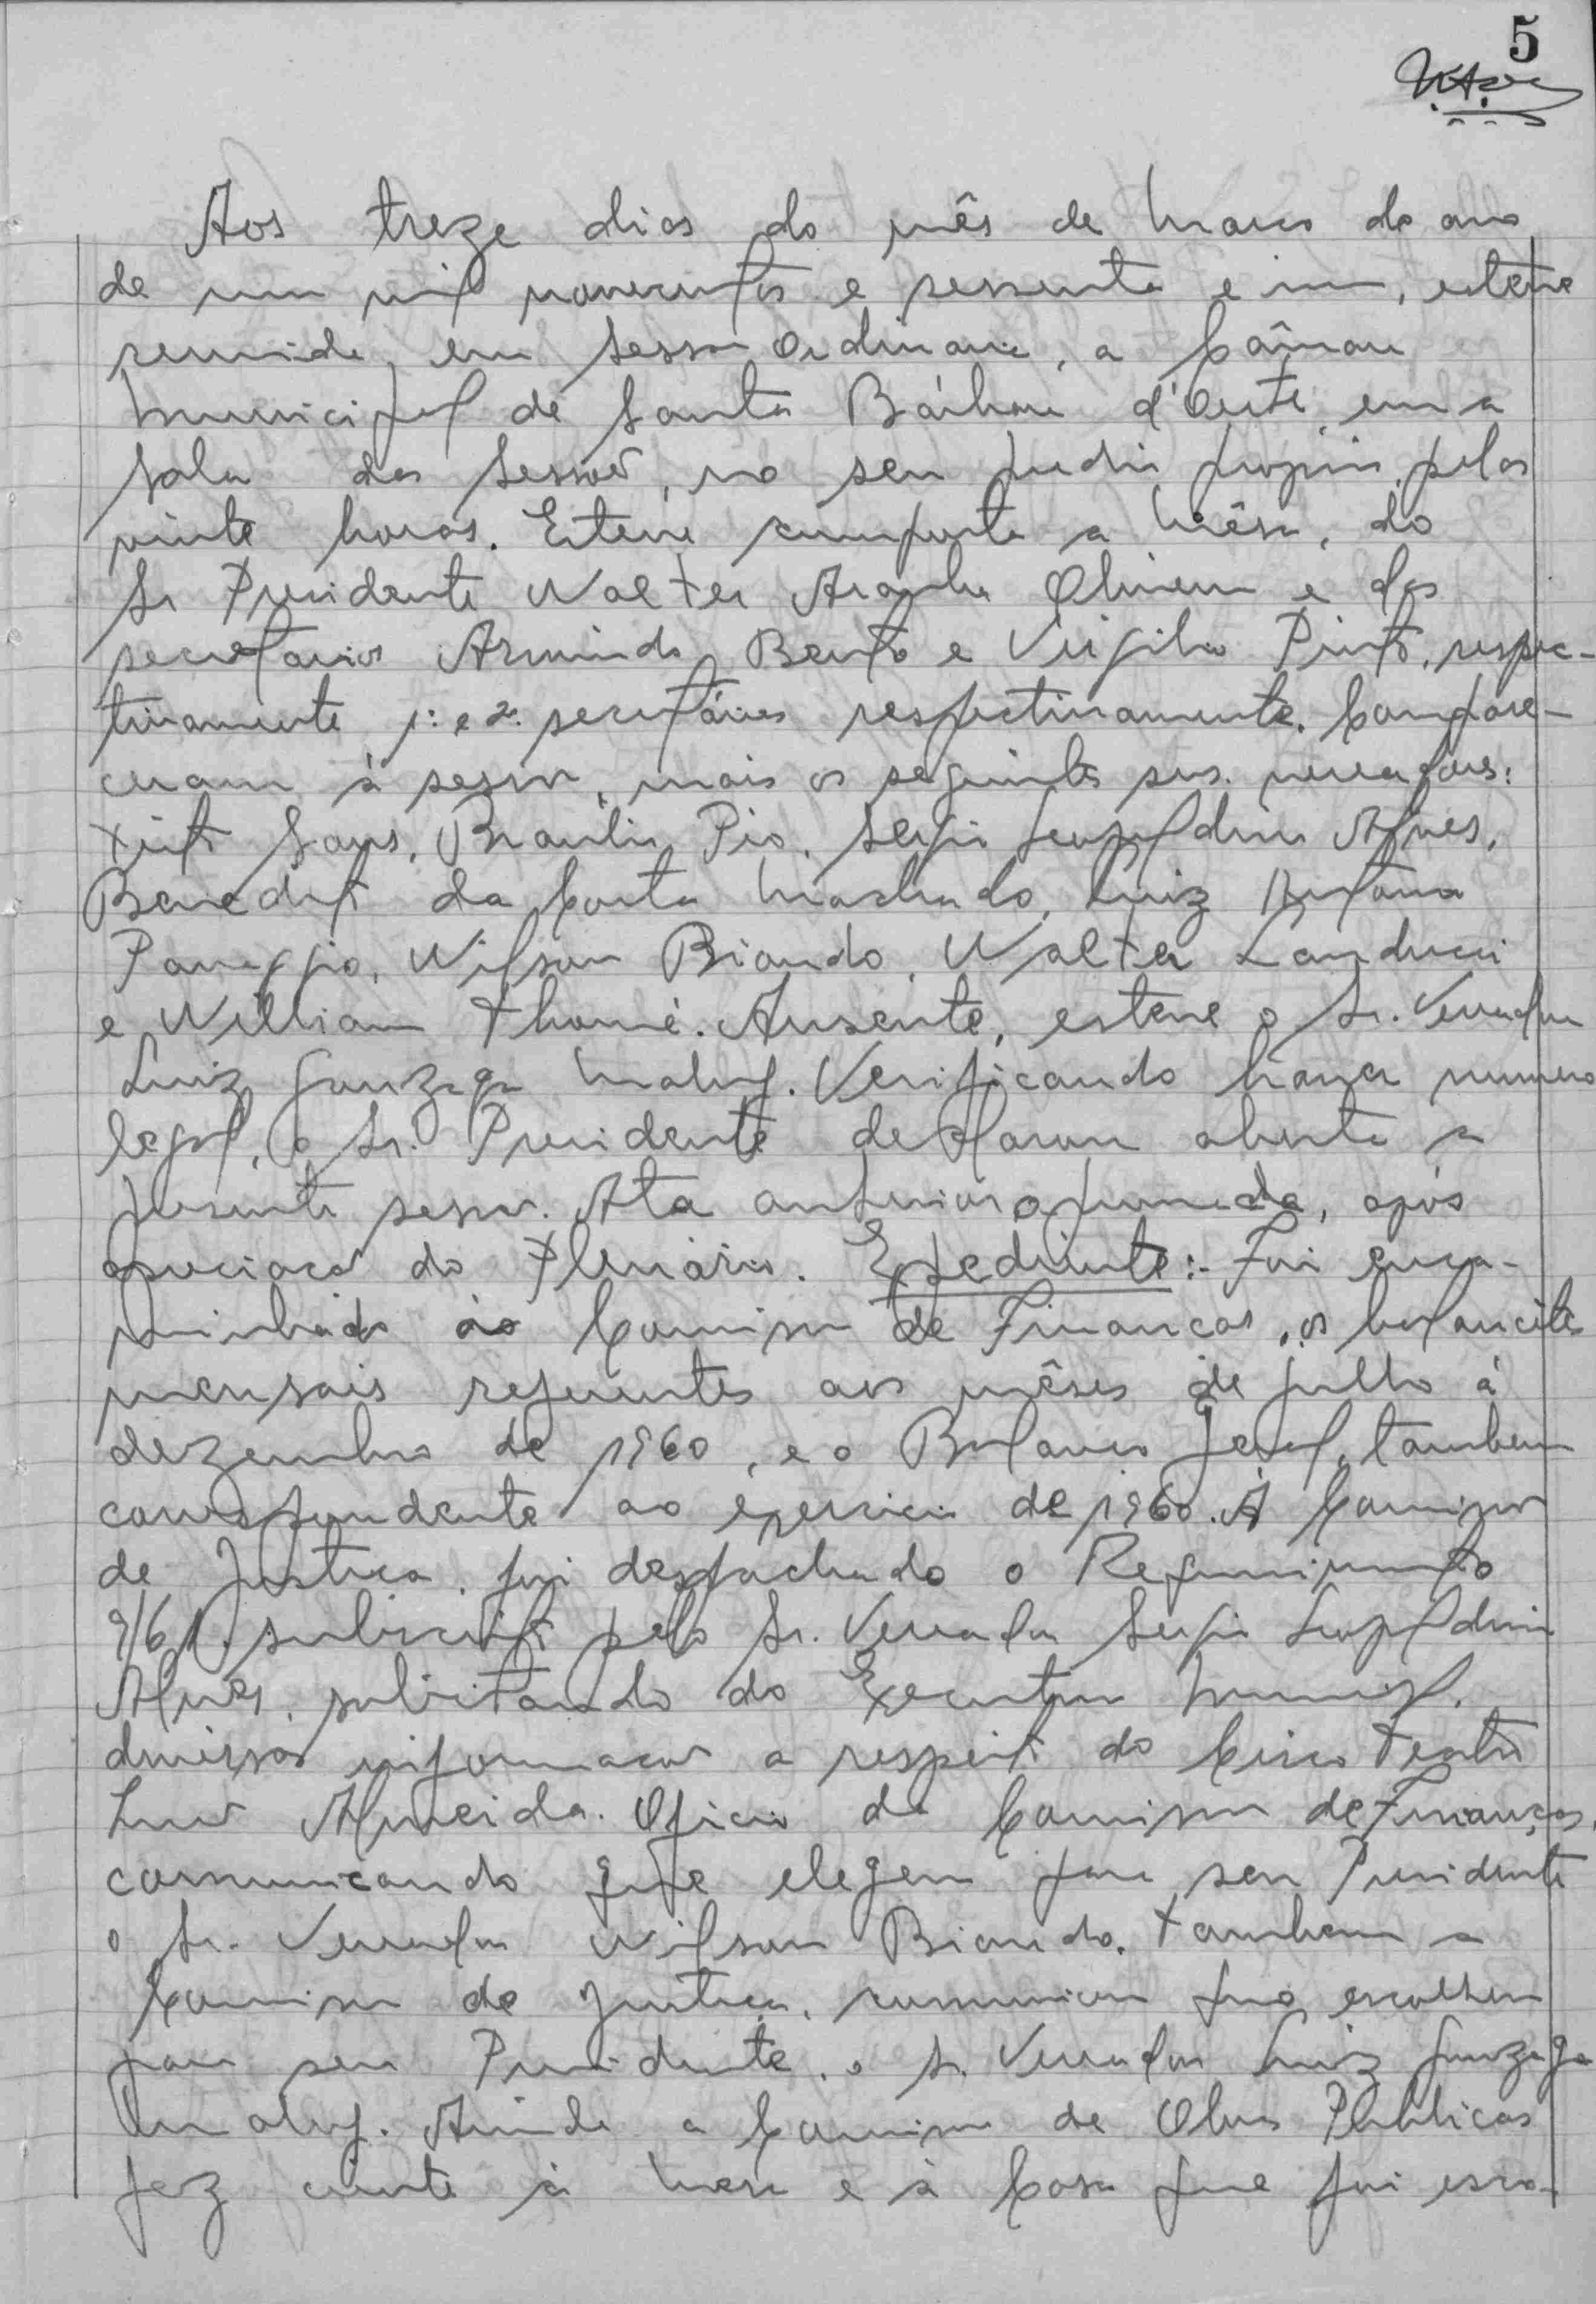 5
Aos treze dias do mês de março do ano
de um mil novecentos e sessenta e um, esteve
reunida, em sessão ordinaria, a Câmara
Municipal de Santa Bárbara d'Oeste, em a
sala das sessões, no seu predio proprio, pelas
vinte horas. Esteve composta a Mêsa, do
Sr Presidente Walter Aranha Oliveira e dos
secretarios Armindo Bento e Virgilio Pinto, respec-
tivamente 1º e 2º secretários respectivamente. Compare-
ceram à sessão, mais os seguintes srs. vereadores:
Xisto Sans, Braulio Pio, Sergio Leopoldino Alves,
Benedito da Costa Machado, Luiz Antonio
Panaggio, Wilson Biondo, Walter Landucci
e William Thomé. Ausente, esteve o Sr. Vereador
Luiz Gonzaga Maluf. Verificando haver numero
legal, o Sr. Presidente declarou aberta a
presente sessão. Ata anterior aprovada, após
apreciação do Plenário. Expediente:- Foi enca-
minhado às Comissão de Finanças, os balancêtes
mensais referentes aos mêses de julho à
dezembro de 1960, e o Balanço Geral, tambem
correspondente ao exercicio de 1960. À Comissão
de Justiça, foi despachado o Requerimento
9/61, subscrito pelo Sr. Vereador Sergio Leopoldino
Alves, solicitando do Executivo Municipal,
diversas informações a respeito do Circo Teatro
Almeida. Oficio da Comissão de Finanças,
comunicando que elegeu para seu Presidente
o Sr. Vereador Wilson Biondo. Tambem a
Comissão de Justiça, comunicou que escolheu
para seu Presidente, o Sr. Vereador Luiz Gonzaga
Maluf. Ainda a Comissão de Obras Públicas
fez ciente à Mesa e à Casa que foi esco-